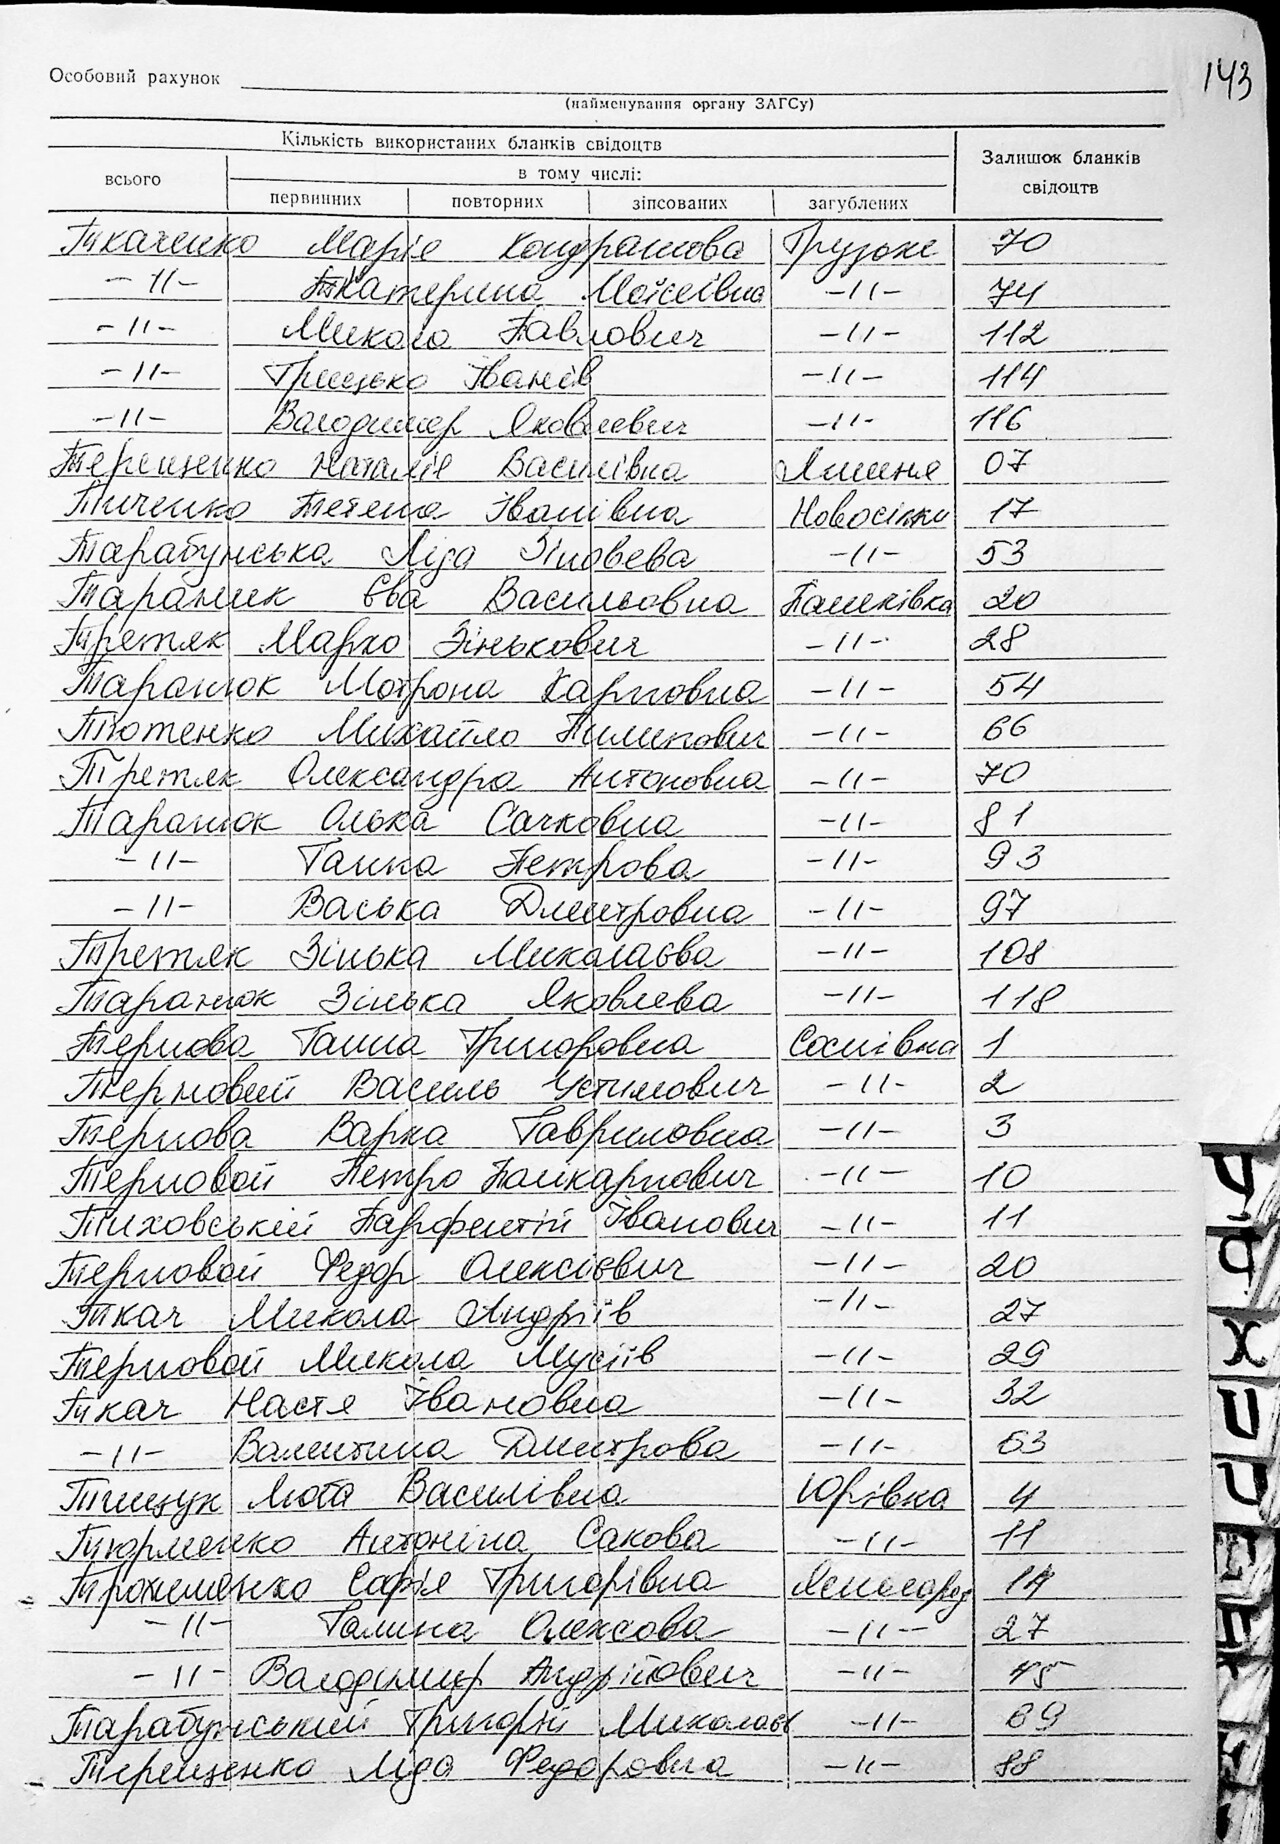 143
Особовий рахунок
(найменування органу ЗАГСу)
Кількість використаних бланків свідоцтв
Залишок бланків свідоцтв
всього
в тому числі:
первинних повторних зіпсованих загублених
Ткаченко Марія Кондратова Грузьке 70
-//- Катерина Мойсеївна -//- 74
-//- Микола Павлович -//- 112
-//- Грицько Іванів -//- 114
-//- Володимир Яковлевич -//- 116
Терещенко Наталія Василівна 07
Тиченко Тетяна Іванівна Новосілки 17
Тарабунська Ліда Зіновева -//- 53
Тараник Єва Васильовна Пашківка 20
Третяк Марко Зінькович -//- 28
Таранюк Мотрона Карповна -//- 54
Тютенко Михайло Пилипович -//- 66
Третяк Олександра Антоновна -//- 70
Таранюк Олька Сачковна -//- 81
-//- Ганна Петрова -//- 93
-//- Васька Дмитровна -//- 97
Третяк Зінька Миколаєва -//- 108
Таранюк Зінька Яковлева -//- 118
Тернова Ганна Григоровна Соснівка 1
Терновий Василь Устимович -//- 2
Тернова Варка Гавриловна -//- 3
Терновой Петро Полікарпович -//- 10
Тиховський Парфентій Іванович -//- 11
Терновой Федор Олексієвич -//- 20
Ткач Микола Андріїв -//- 27
Терновой Микола Мусіїв -//- 29
Ткач Настя Івановна -//- 32
-//- Валентина Дмитрова -//- 63
Тищук Люба Василівна Юрівка 4
Тюрменко Антоніна Сакова -//- 11
Трохименко Софія Григорівна Ясногород 14
-//- Галина Олексова -//- 27
-//- Володимир Андрійович -//- 45
Тарабунський Григорій Миколаєв -//- 69
Терещенко Ліда Федоровна -//- 88